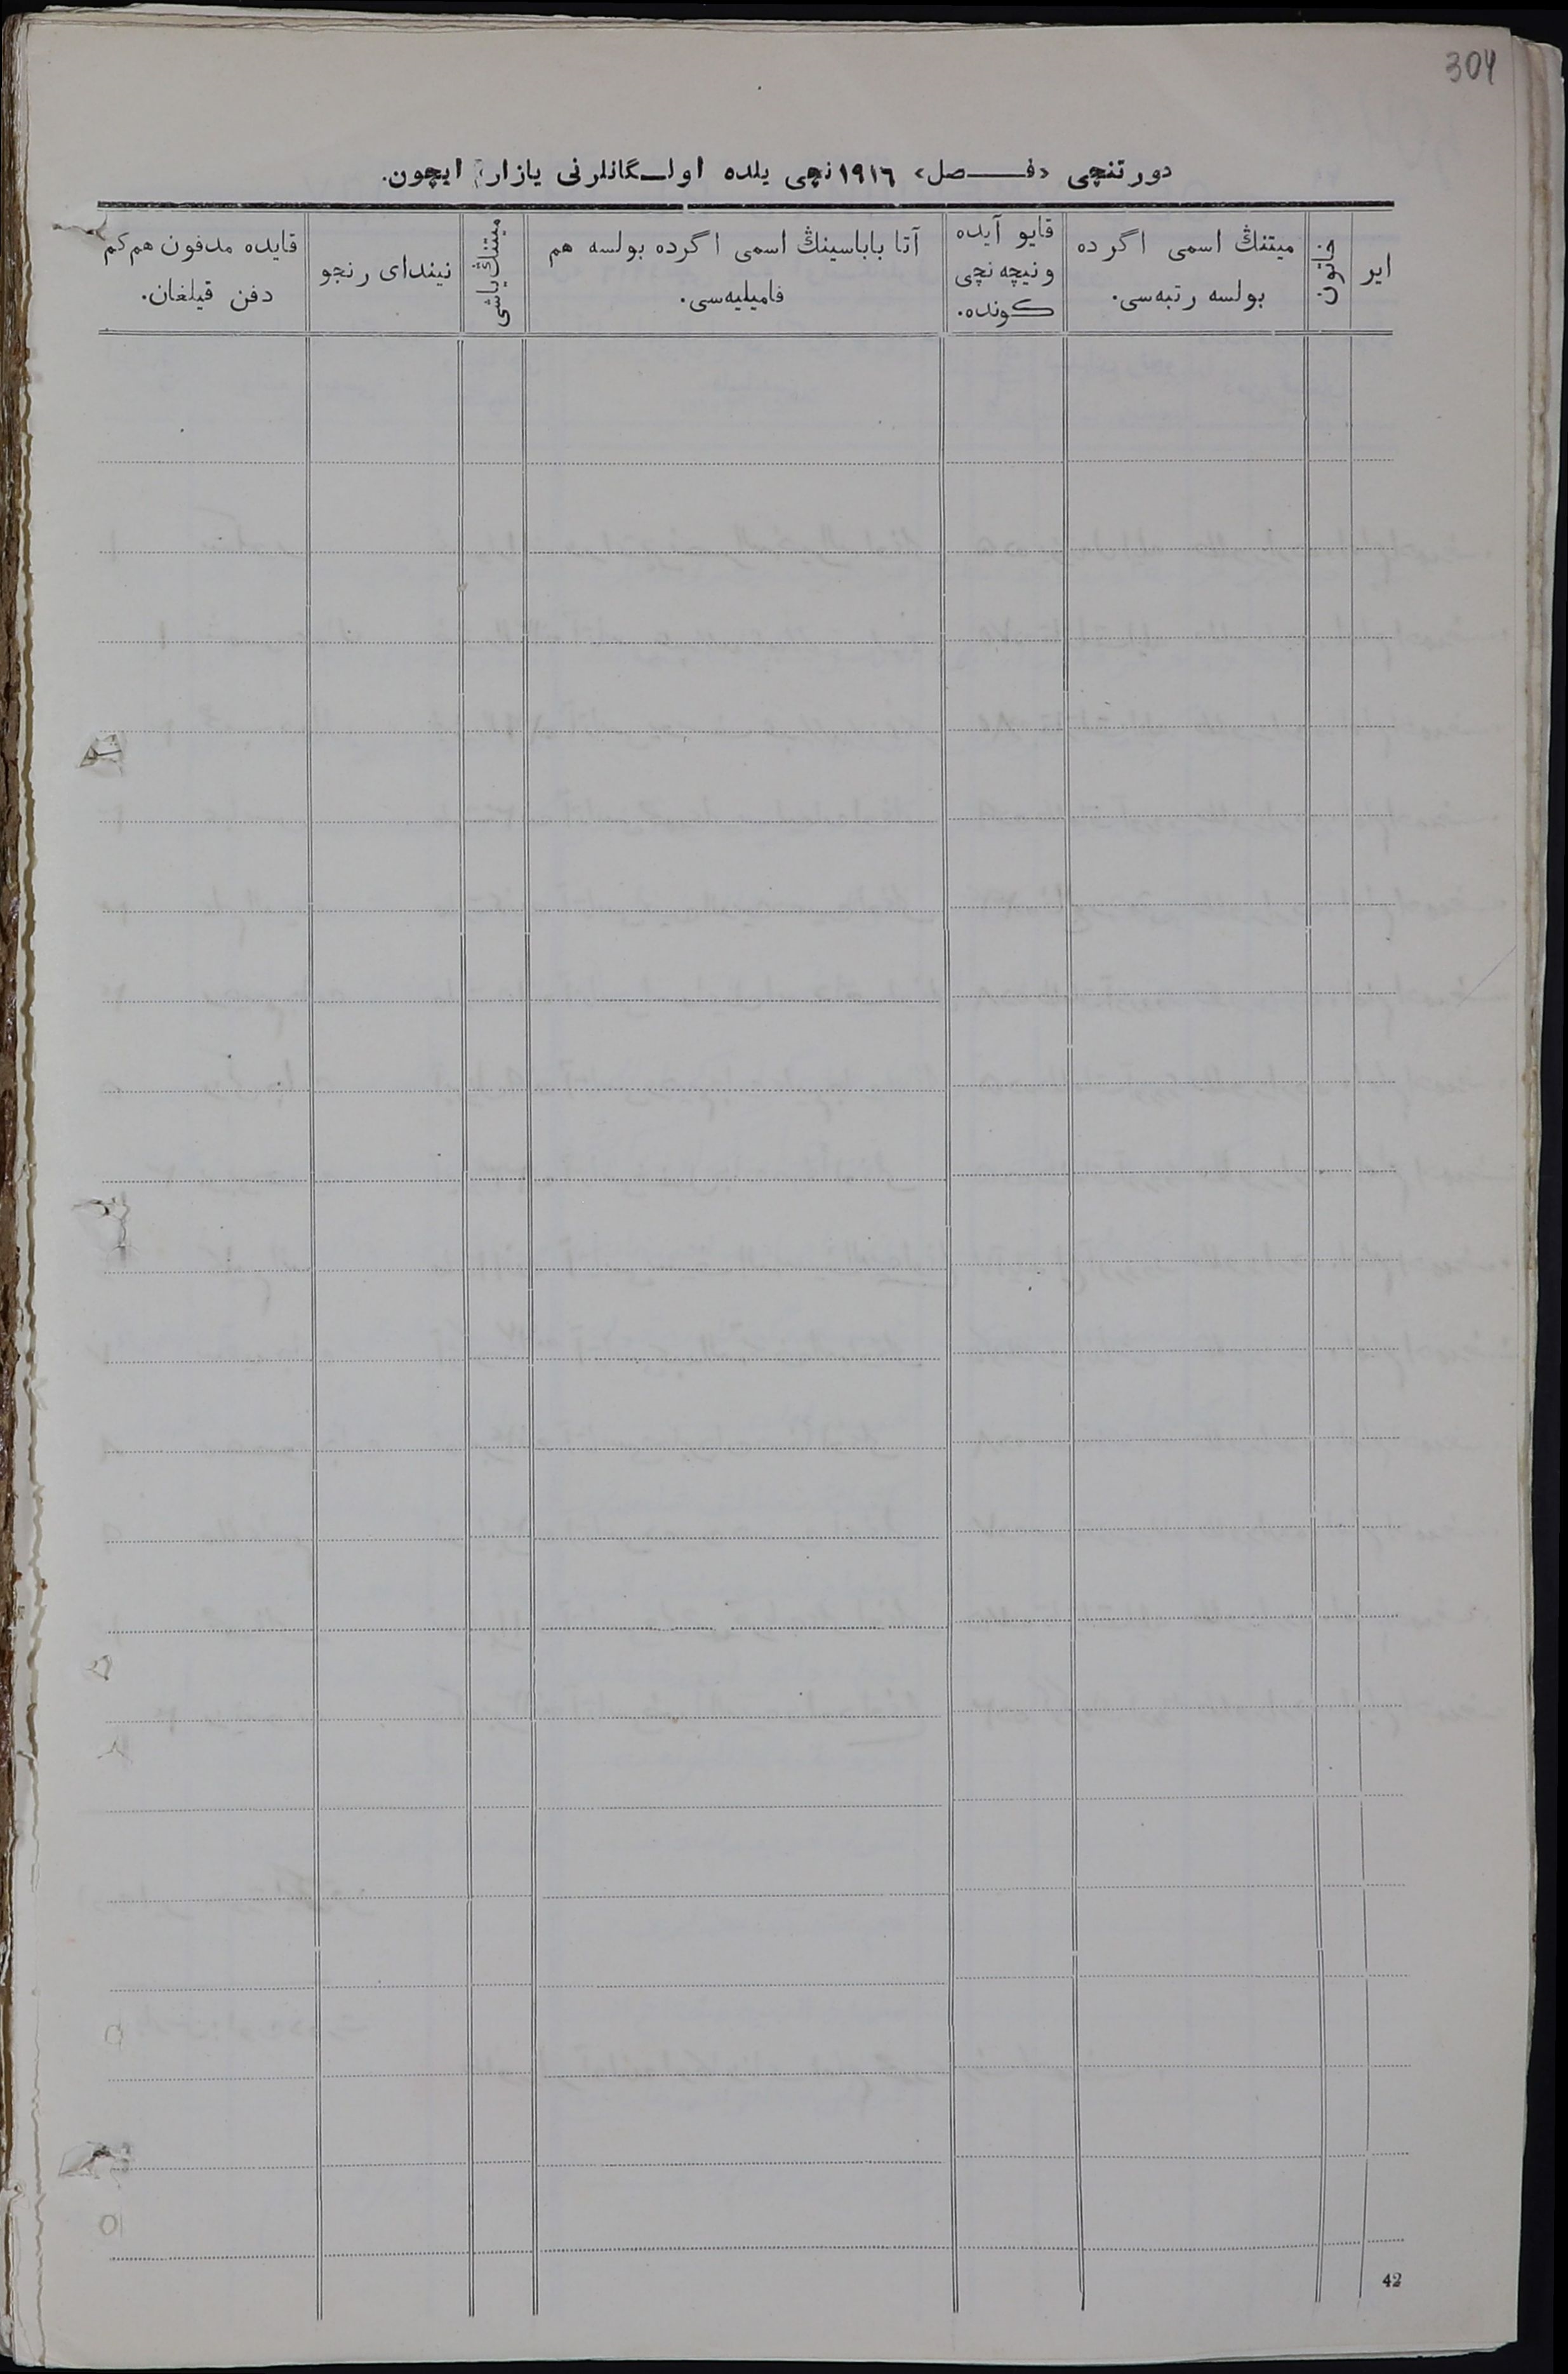 304
دورتنچی «فـصل» ١٩١٦ نچی یلده اولـگانلرنی یازار ایچون.
ایر
خاتون
میتنڭ اسمی اگرده
بولسه رتبه‌سی.
قایو آیده
ونیچه نچی
کونده.
آتا باباسینڭ اسمی اگرده بولسه هم
فامیلیه‌سی.
میتنڭ یاشی
نیندای رنجو
قایده مدفون هم کم
دفن قیلغان.
42